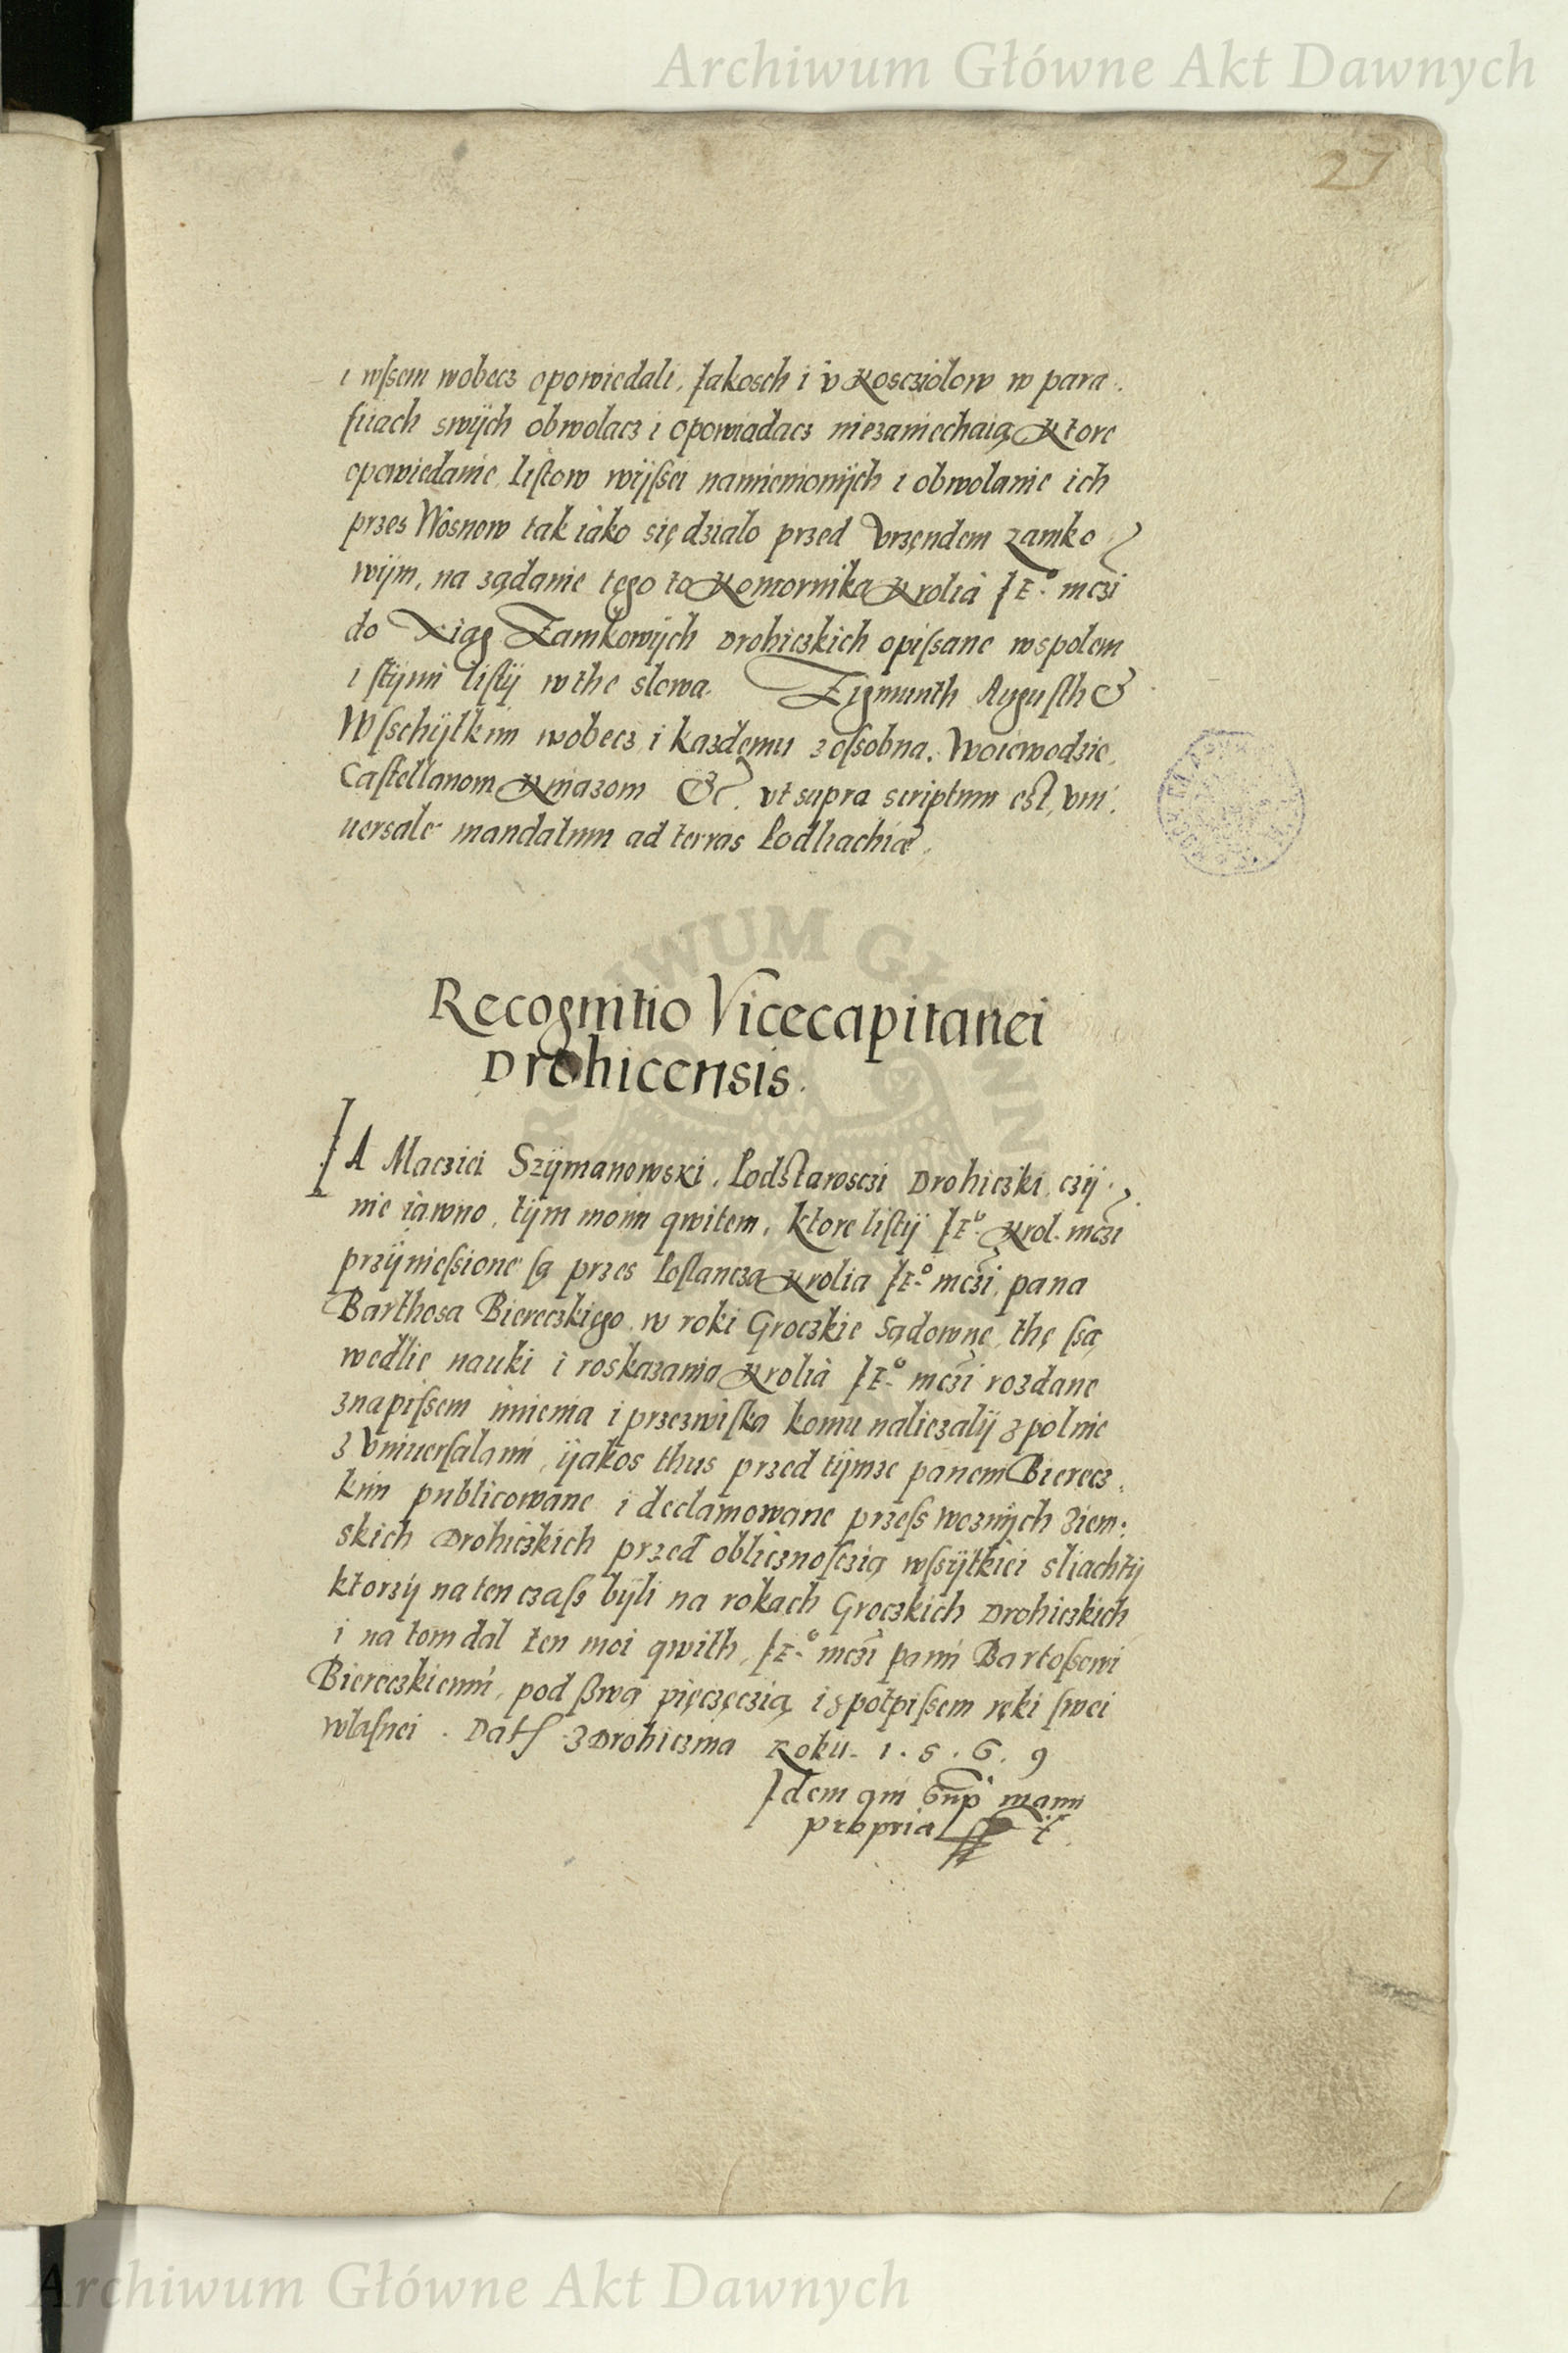 Archiwum Główne Akt Dawnych
27
i wſsem wobecz opowiedali, Jakosch i v Kosciolow w para.
fiiach swÿch obwolacz i opowiadacz niezaniechaią Ktore
opowiedanie listow wÿſsei namienionÿch i obwolanie ich
przes Wosnow tak iáko się dzialo przed Vrzęndem zamko
wÿm, na ządanie tego to Komornika Krolia JE.º mczi
do Xiąg Zamkowÿch Drohiczkich opiſsane wspolem
i stÿmi listÿ wthe slowa. Zigmunth Augusth &
Wſschÿtkim wobecz i kazdemu zoſsobna. Woiewodzie,
Castellanom Kniazom &c. vt supra scriptum est, vni
uersale mandatum ad terras Podliachiæ.
Recognitio Vicecapitanei
Drohicensis.
JA Macziei Szÿmanowski, Podstarosczi Drohiczki, czÿ
nie iáwno, tÿm moim qwitem, ktore listÿ JEº. Krol. mczi
przÿnieſsione ſą przes Poslancza Krolia JE.º mczi, pana
Barthosa Biereczkiego w roki Groczkie Sądowne, thę ſsą
wedlie nauki i roskazania Krolia JE.º mczi rozdane
znapiſsem imienia i przezwiſka komu naliezalÿ zpolnie
z Vniuerſalami, ÿakos thus przed tÿmze panem Bierecz
kim publicowane i declamowane przeſs woznÿch Ziem:
skich Drohiczkich przed obliczноſczią wſsÿtkiei sliachtÿ
ktorzÿ na ten czaſs bÿli na rokach Groczkich Drohiczkich
i na tom dal ten moi qwith, JE.º mczi panu Bartoſsowi
Biereczkiemu, pod ßwą pięczęczią i zpotpiſsem ręki ſwei
wlaſnei. Datſ z Drohiczina Roku. 1.5.6.9
Idem qui sup manu
propria
Archiwum Główne Akt Dawnych